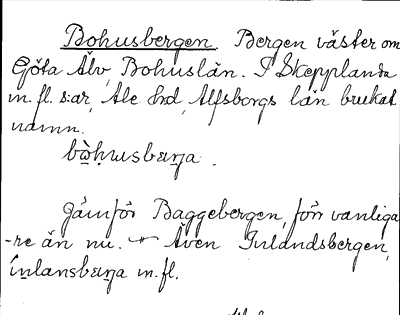 Bohusbergen. Bergen väster om
Göta Älv, Bohuslän. I Skepplanda
m. fl. s:ar, Ale hd, Älfsborgs län brukat
namn.
bòhusbærja.
Jämför Baggebergen, förr vanliga
-re än nu. – Även Inlandsbergen,
ínlansbærja m. fl.